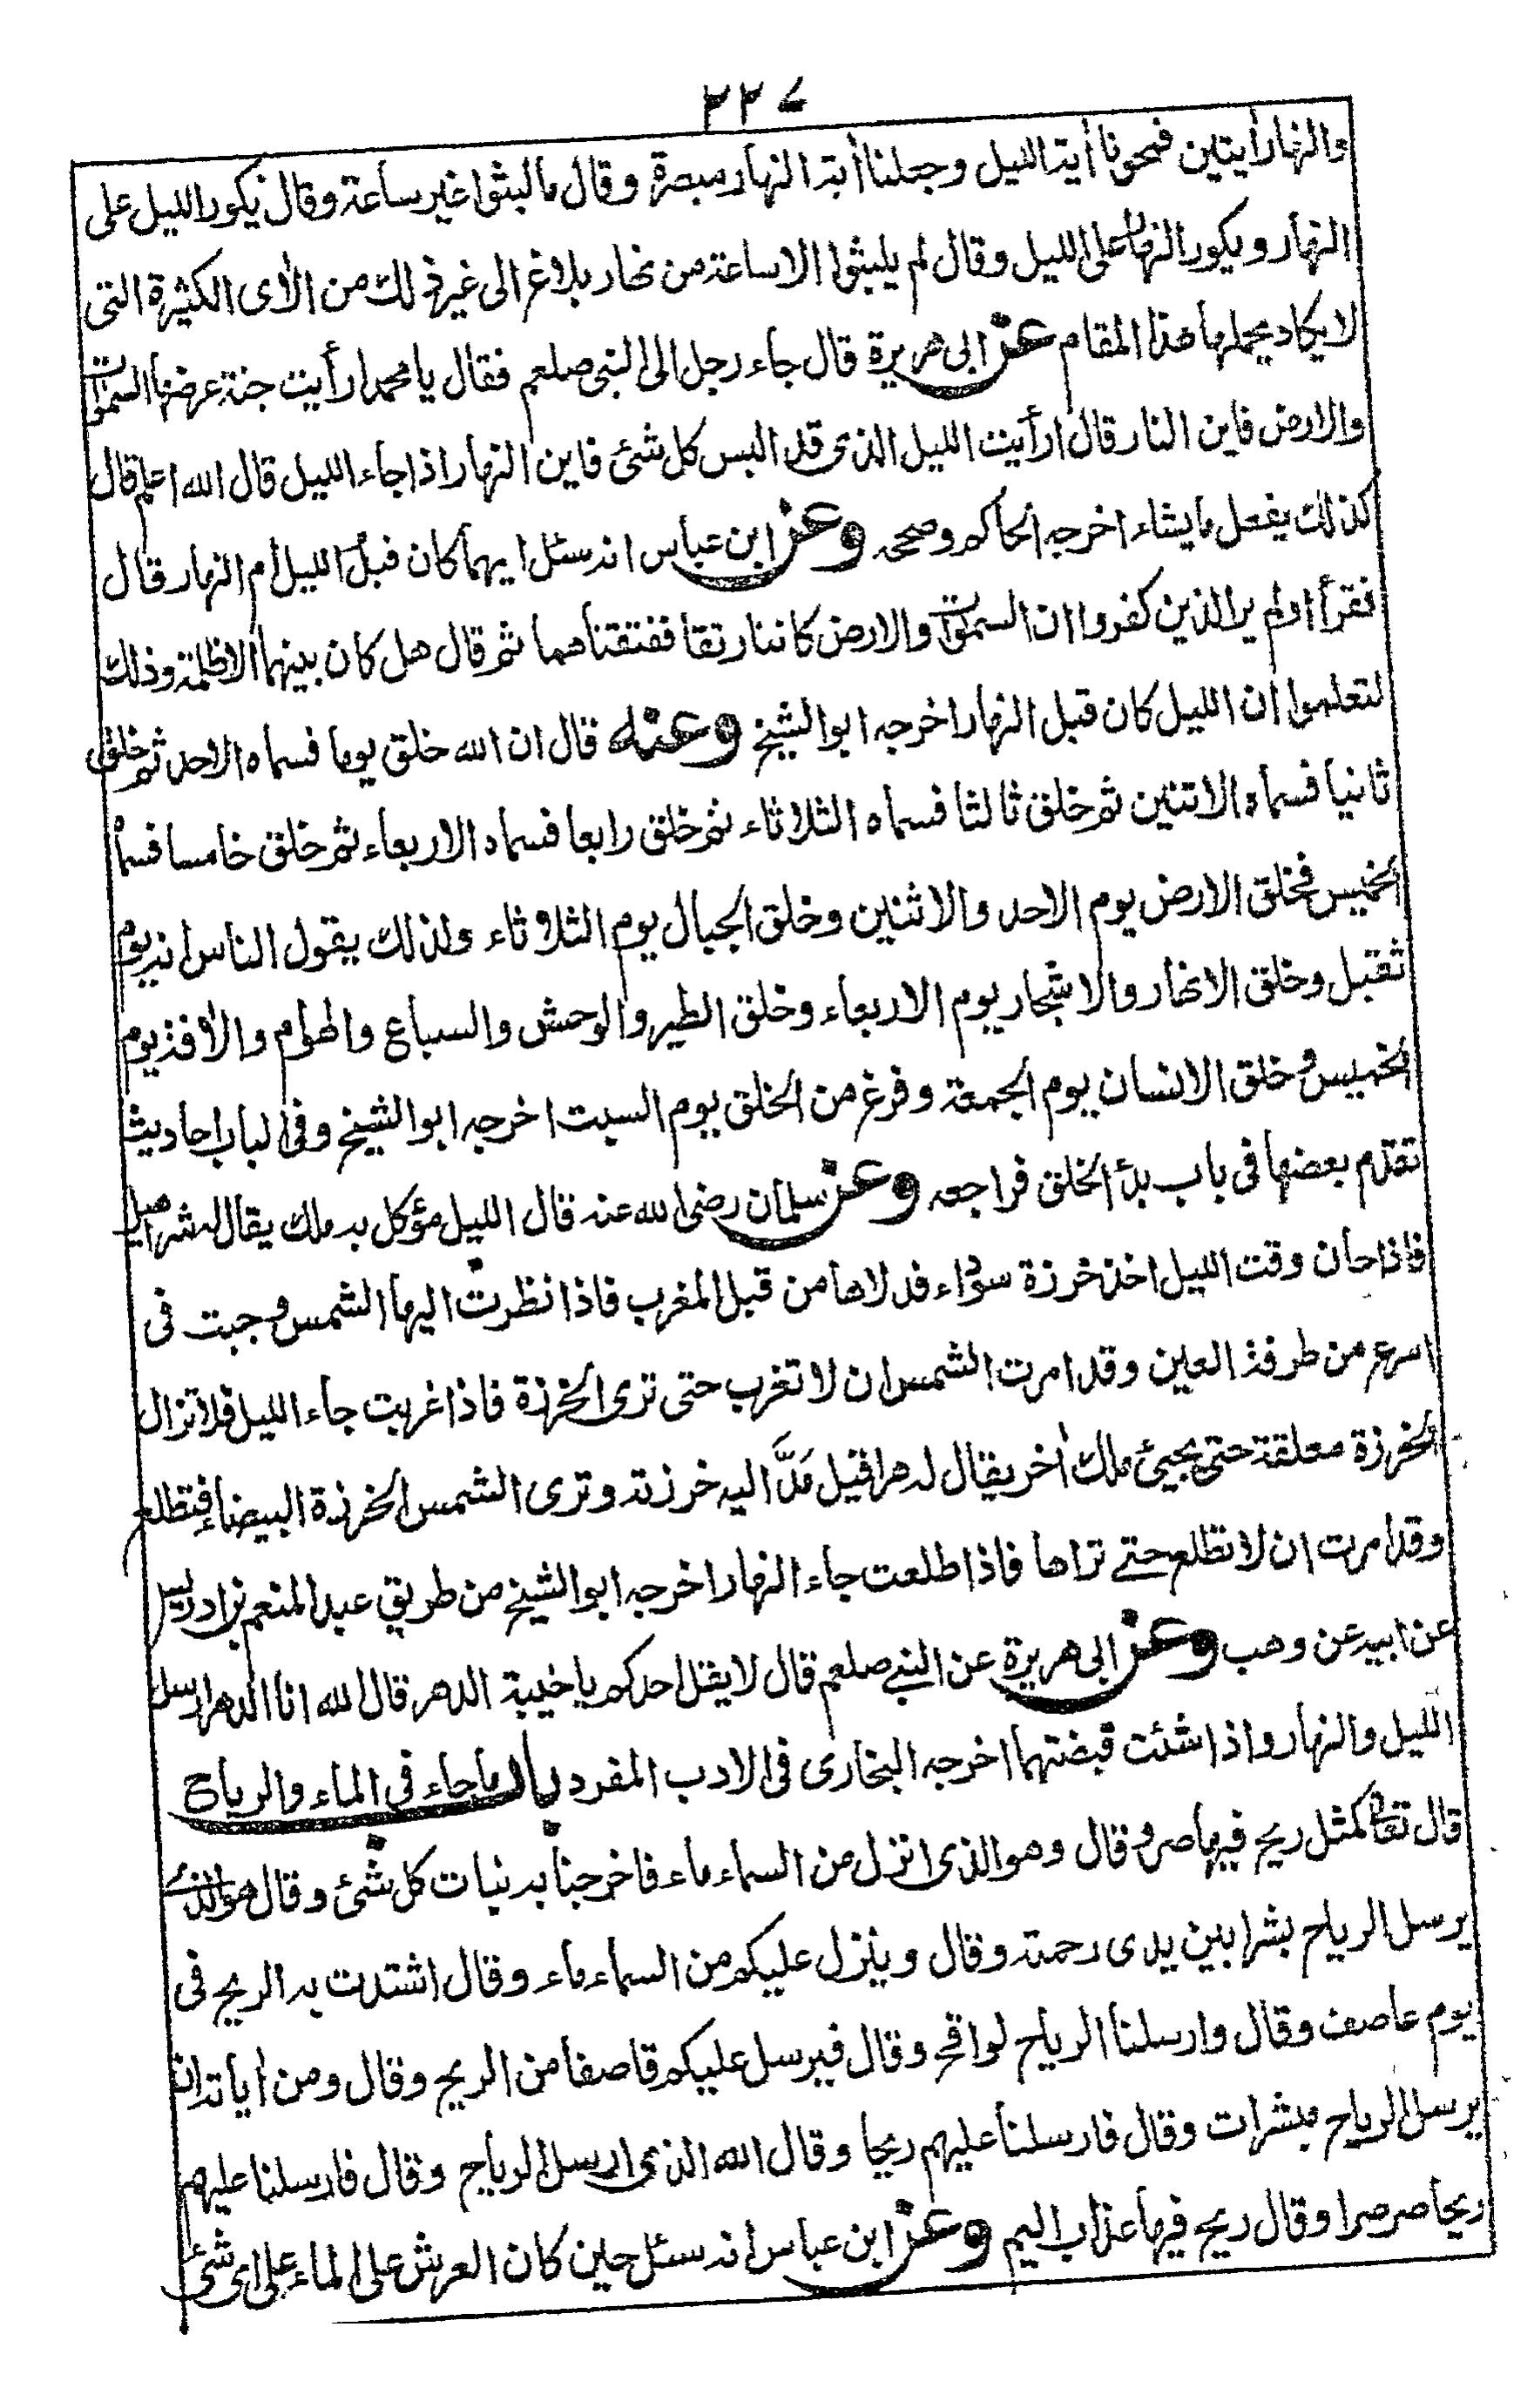 ٢٢٧
والنهار أيتين فمحونا أية الليل وجعلنا أية النهار مبصرة وقال مالبثوا غير ساعة وقال يكور الليل على
النهار ويكور النهار على الليل وقال لم يلبثوا الا ساعة من نهار بلاغ الى غير ذلك من الأى الكثيرة التى
لا يكاد يحملها هذا المقام عن ابى هريرة قال جاء رجل الى النبى صلعم فقال يا محمد ارأيت جنة عرضها السموات
والارض فاين النار قال ارأيت الليل الذى قد البس كل شئ فاين النهار اذا جاء الليل قال الله اعلم قال
كذلك يفعل ما يشاء اخرجه الحاكم وصححه وعن ابن عباس انه سئل ايهما كان قبل الليل ام النهار قال
فقرأ اولم ير الذين كفروا ان السموات والارض كانتا رتقا ففتقناهما ثم قال هل كان بينهما الا ظلمة وذلك
لتعلموا ان الليل كان قبل النهار اخرجه ابو الشيخ وعنه قال ان الله خلق يوما فسماه الاحد ثم خلق
ثانيا فسماه الاثنين ثم خلق ثالثا فسماه الثلاثاء ثم خلق رابعا فسماه الاربعاء ثم خلق خامسا فسماه
الخميس فخلق الارض يوم الاحد والاثنين وخلق الجبال يوم الثلاثاء ولذلك يقول الناس انه يوم
ثقيل وخلق الانهار والاشجار يوم الاربعاء وخلق الطير والوحش والسباع والهوام والأفة يوم
الخميس وخلق الانسان يوم الجمعة وفرغ من الخلق يوم السبت اخرجه ابو الشيخ وفى الباب احاديث
تقدم بعضها فى باب بدأ الخلق فراجعه وعن سلمان رضى الله عنه قال الليل مؤكل به ملك يقال له شراهيل
فاذا حان وقت الليل اخذ خرزة سوداء فدلاها من قبل المغرب فاذا نظرت اليها الشمس وجبت فى
اسرع من طرفة العين وقد امرت الشمس ان لا تغرب حتى ترى الخرزة فاذا غربت جاء الليل فلا تزال
الخرزة معلقة حتى يجيئ ملك أخر يقال له هراقيل مَدَّ اليه خرزته وترى الشمس الخرزة البيضاء فتطلع
وقد امرت ان لا تطلع حتے تراها فاذا طلعت جاء النهار اخرجه ابو الشيخ من طريق عبد المنعم بن ادريس
عن ابيه عن وهب وعن ابى هريرة عن النبے صلعم قال لا يقل احدكم يا خيبة الدهر قال الله انا الدهر ارسل
الليل والنهار واذا شئت قبضتهما اخرجه البخارى فى الادب المفرد باب ما جاء فى الماء والرياح
قال تعالى كمثل ريح فيها صر وقال وهو الذى انزل من السماء ماء فاخرجنا به نبات كل شئ وقال هو الذے
يرسل الرياح بشرا بين يدى رحمته وقال وينزل عليكم من السماء ماء وقال اشتدت به الريح فى
يوم عاصف وقال وارسلنا الرياح لواقح وقال فيرسل عليكم قاصفا من الريح وقال ومن أياته ان
يرسل الرياح مبشرات وقال فارسلنا عليهم ريحا وقال الله الذى ارسل الرياح وقال فارسلنا عليهم
ريحا صرصرا وقال ريح فيها عذاب اليم وعن ابن عباس انه سئل حين كان العرش على الماء على اى شئ